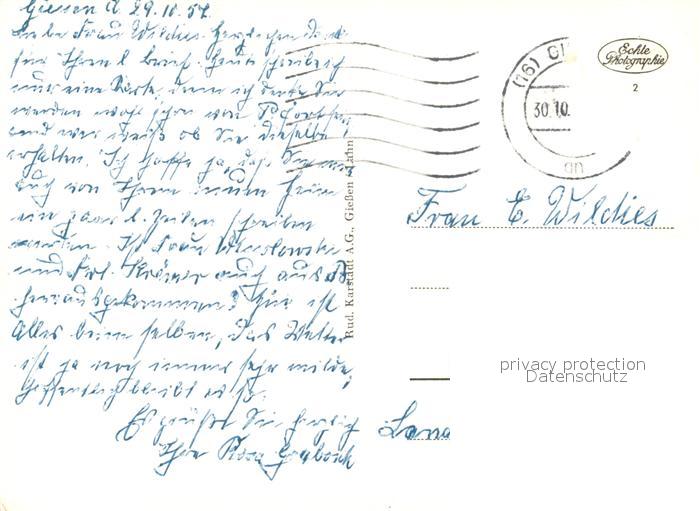 Giessen d. 29.10.54.
Liebe Frau Wildies. Herzlichen Dank
für Ihren l. Brief. Heute schreibe ich
nur eine Karte, denn ich denke Sie
werden wohl schon von fort sein
und wer weiß ob Sie dieselbe
erhalten. Ich hoffe ja, daß Sie mir
auch von Ihrem neuen Heim
ein paar l. Zeilen schreiben
werden. Ist Frau
und Frl. Krämer auch aus
herausgekommen? Hier ist
alles beim selben, das Wetter
ist ja noch immer sehr milde,
hoffentlich bleibt es so.
Es grüßt Sie herzlich
Ihre Rosa
Rud. Karstadt A.G., Gießen Lahn
(16) GI
30.10.
an
Echte
Photographie
2
Frau E. Wildies
privacy protection
Datenschutz
Lana